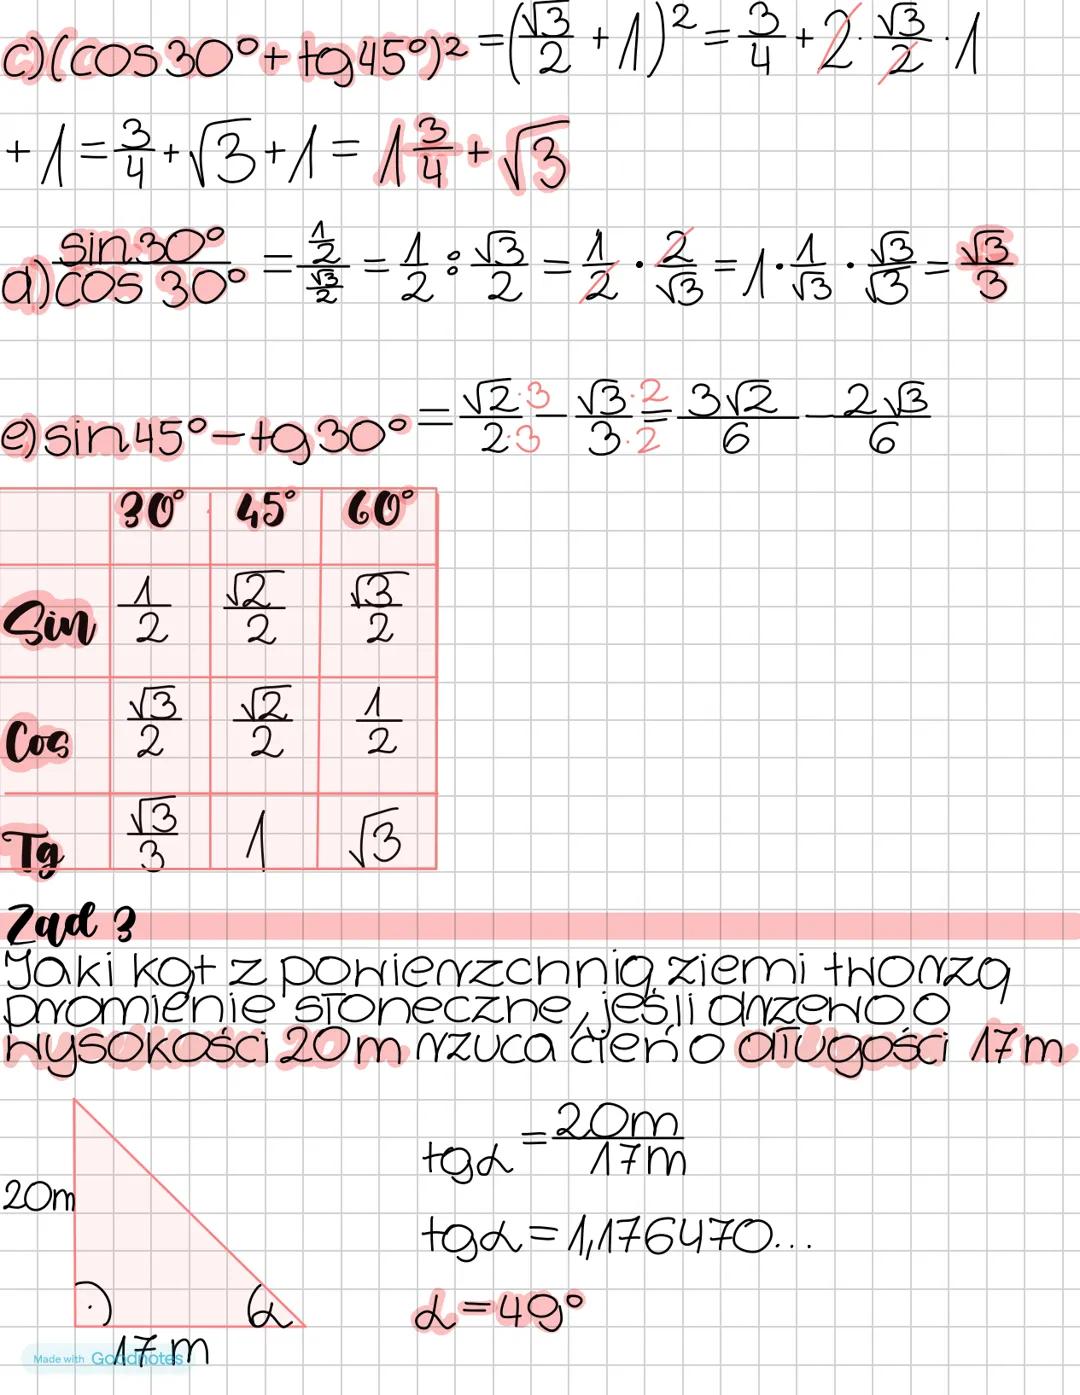 c) (cos30°+tg45°)² = (√3/2 + 1)² = 3/4 + 2·√3/2·1
+1 = 3/4 + √3 + 1 = 1 3/4 + √3
d) sin30°/cos30° = (1/2)/(√3/2) = 1/2 : √3/2 = 1/2 · 2/√3 = 1 · 1/√3 · √3/√3 = √3/3
e) sin45°-tg30° = √2·3/2·3 - √3·2/3·2 = 3√2/6 - 2√3/6
30° 45° 60°
Sin 1/2 √2/2 √3/2
Cos √3/2 √2/2 1/2
Tg √3/3 1 √3
Zad 3
Jaki kąt z powierzchnią ziemi tworzą
promienie słoneczne, jeśli drzewo o
wysokości 20m rzuca cień o długości 17m
20m
17m
α
tgα = 20m/17m
tgα = 1,176470...
α = 49°
Made with Goodnotes